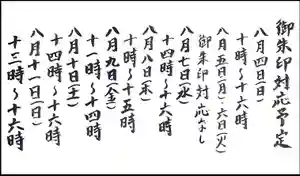 御朱印対応予定
八月四日(日)
十時〜十六時
八月五日(月)六日(火)
御朱印対応なし
八月七日(水)
十四時〜十六時
八月八日(木)
十時〜十五時
八月九日(金)
十一時〜十四時
八月十日(土)
十四時〜十六時
八月十一日(日)
十三時〜十六時